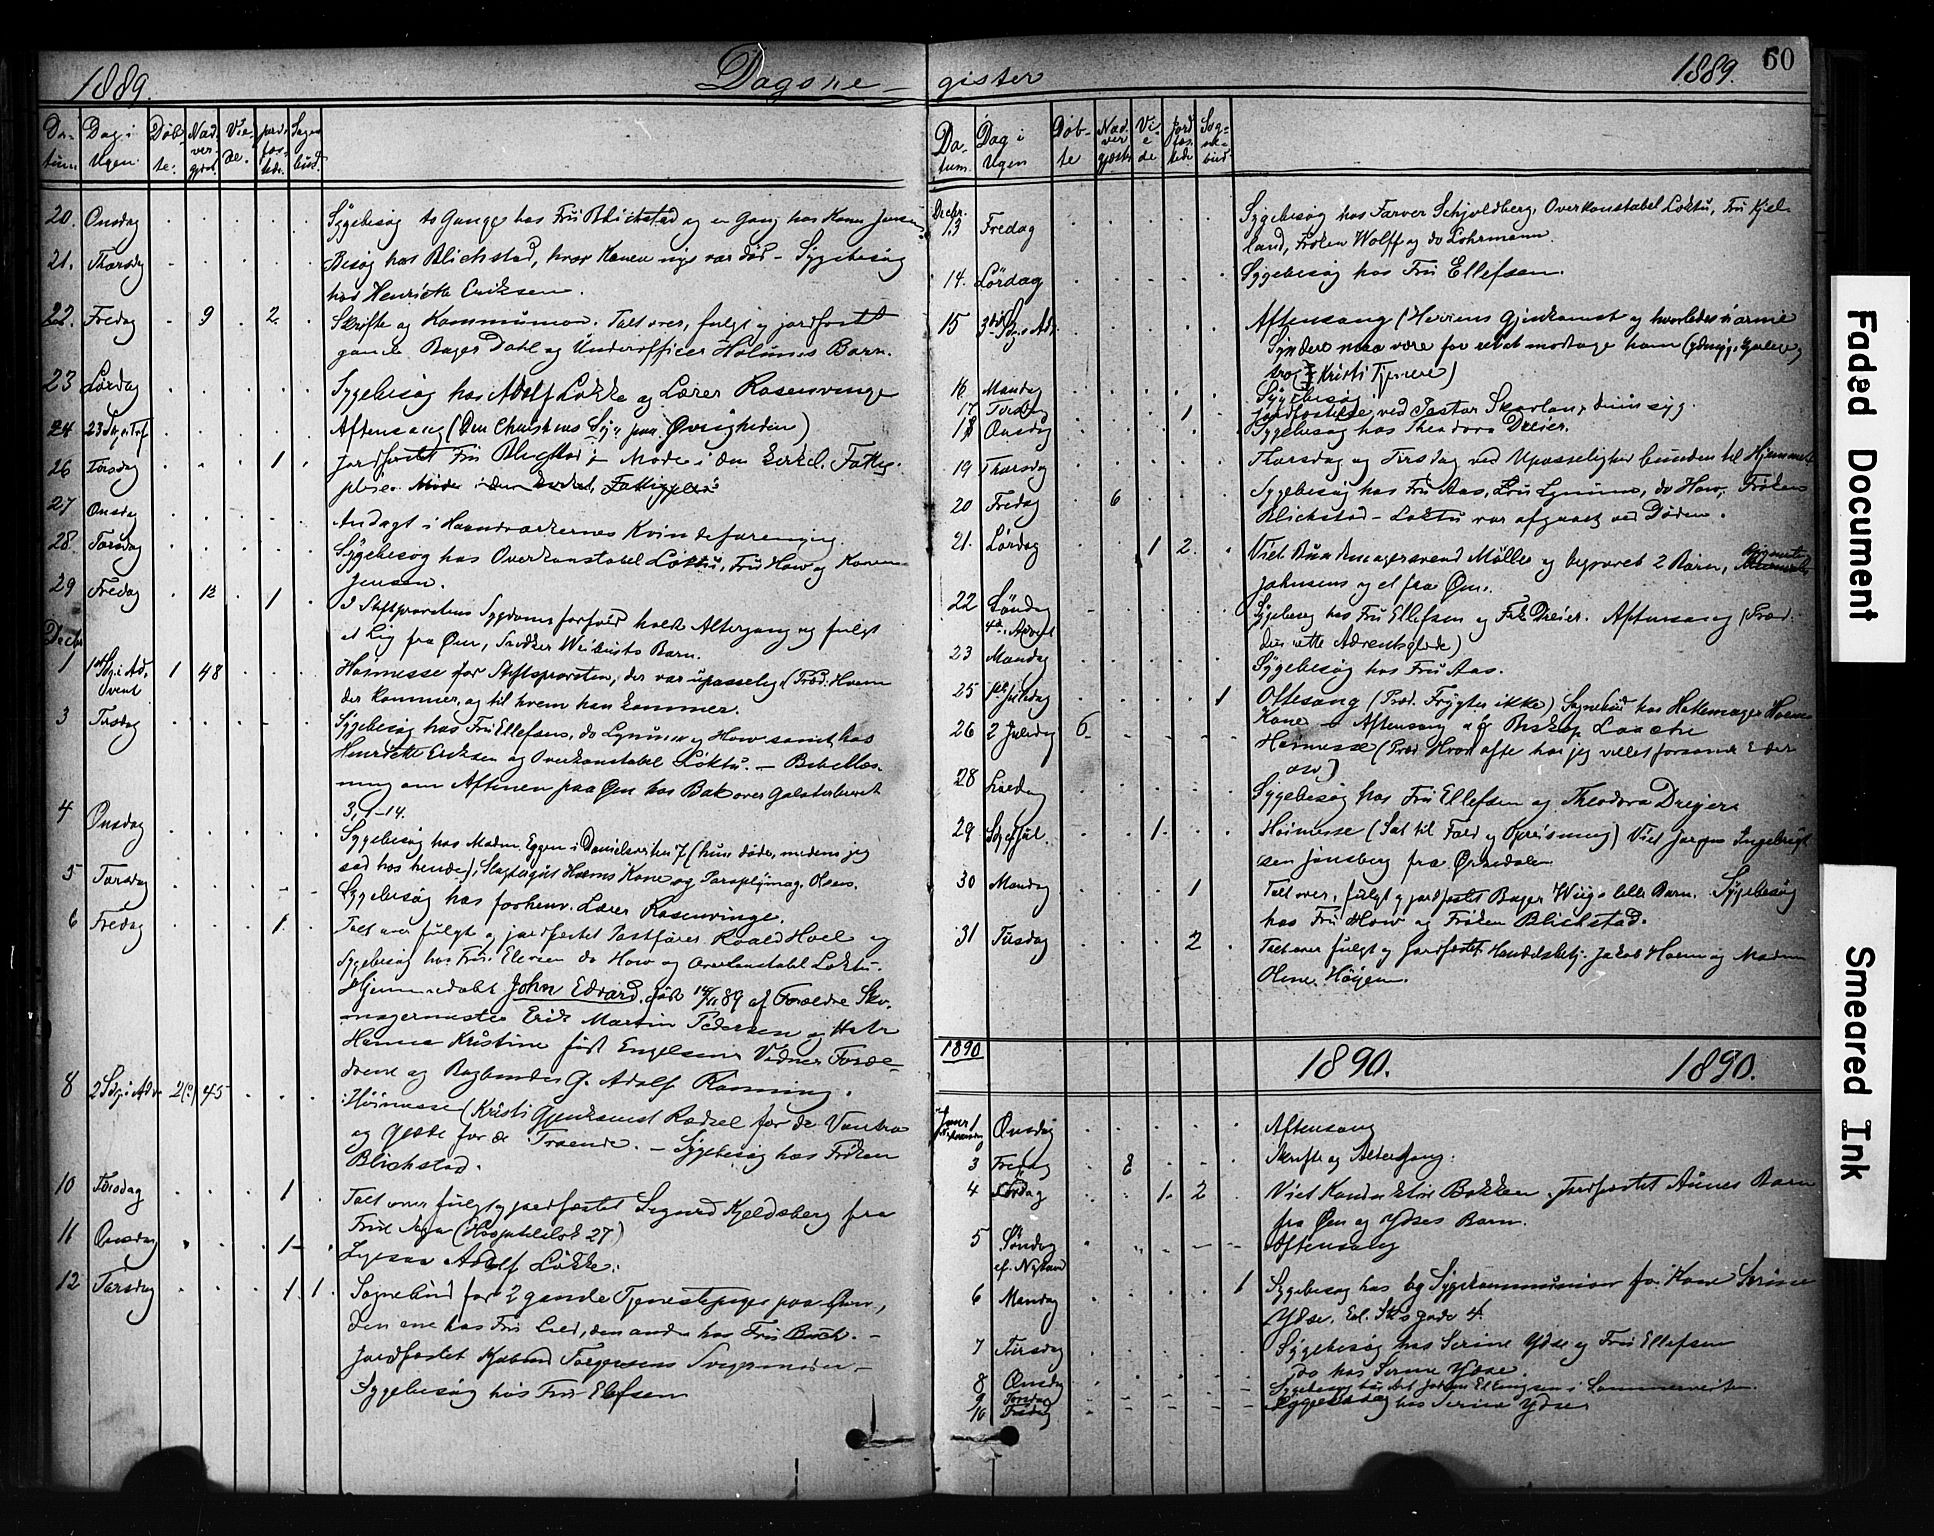 1889. Dagsre-
Da-tum Dag i Ugen Døb-te. Nad-ver-gjæst. Vie-de. Jord-fæs-tede. Sogne-bud.
20. Onsdag Sygebesøg to Gange hos Fru Blichstad og en Gang hos Karen Jensen
21. Thorsdag Besøg hos Blichstad, hvor Konen nys var død - Sygebesøg
hos Henriette Eriksen.
22. Fredag 9 2. Skrifte og Kommunion. Talt over, fulgt og jordfæstet
Bager Dahl og Underofficer Barn.
23 Lørdag Sygebesøg hos Adolf Løkke og Lærer Rosenvinge
24 23 S. e. Trf Aftensang (Den Christens Syn paa Øvrigheden)
26 Tirsdag 1 Jordfæstet Fru Blichstad - Møde i den Fattig-
pleie.
27 Onsdag Andagt i Haandværkernes Kvindeforening.
28. Torsdag Sygebesøg hos Overkonstabel Loktu, Fru How og Karen
Jensen.
29 Fredag 12 1 I Stiftsprovstens Sygdomsforfald holdt Altergang og fulgt
et Lig fra Øen, Snedker Barn.
Decbr
1 1st S. i Advent 1 48 Høimesse for Stiftsprovsten, der var upasselig (Præd: Hvem
der kommer, og til hvem han kommer.
3 Tirsdag Sygebesøg hos Fru Ellefsen, do Lynum og How samt hos
Henriette Eriksen og Overkonstabel Loktu. - Bibellæs-
ning om Aftenen paa Øen hos Bak over Galaterbrevet
3, 1-14.
4 Onsdag Sygebesøg hos Madm. Eggen i Danielsveiten 7 (hun døde, medens jeg
sad hos hende), Kone og Paraplymag. Olsen.
5 Torsdag Sygebesøg hos forhenv. Lærer Rosenvinge.
6 Fredag 1 Talt over fulgt og jordfæstet Postfører Roald Hoel og
Sygebesøg hos Fru do How og Overkonstabel Loktu.
Hjemmedøbt John Edvard, født 14/11 89 af Forældre Sko-
magermester Erik Martin Pedersen og Hstr
Hanna Kristine født Engelsen Vidner Foræl-
drene og Bogbinder G. Adolf Rønning.
8 2 Sdg. i Adv 2(?) 45 Høimesse (Kristi Gjenkomst Rædsel for de Vantro
og Glæde for de Troende. - Sygebesøg hos Frøken
Blichstad.
10 Tirsdag 1 Talt over fulgt og jordfæstet Sigurd Kjeldsberg fra
11 Onsdag 1 Adolf Løkke.
12 Torsdag 1 1. Sognebud for 2 Tjenestepiger paa Øen,
den ene hos Fru den anden hos Fru Buch. -
Jordfæstet Torgersens
Sygebesøg hos Fru Elefsen

gister 1889. 60
Da-tum. Dag i Ugen Døb-te Nad-ver gjæst Vi-e-de Jord fæs-tede Sog-ne-bud
Decbr.
13 Fredag Sygebesøg hos Farver Schjoldberg, Overkonstabel Loktu, Fru Kjel-
land, Frøken Wolff og do Lohrmann.
14. Lørdag Sygebesøg hos Fru Ellefsen.
15 3die Sg. i Adv. Aftensang (Herrens Gjenkomst og hvorledes vi arme
Syndere maa være for ret at modtage ham
Kristi Tjenere)
16 Mandag Sygebesøg
17 Tirsdag 1 Jordfæstelse ved Pastor
18 Onsdag Sygebesøg hos Theodora Dreier.
19 Thorsdag Thorsdag og Tirsdag ved Upasselighed bunden til Hjemmet
20 Fredag 6 Sygebesøg hos Fru Aas, Fru Lynum, do How, Frøken
Blichstad - Loktu var afgaaet ved Døden.
21. Lørdag 1 2. Viet Bundtmagersvend Møller og begravet 2 Børn,
Johnsens og et fra Øen.
22 Søndag 4de Advent Sygebesøg hos Fru Ellefsen og Frk Dreier. Aftensang (Præd:
den rette Adventsglæde)
23 Mandag Sygebesøg hos Fru Aas.
25 1ste Juledag 1 Ottesang (Præd. Frygter ikke) Sognebud hos Hoems
26 2 Juledag 6 Kone - Aftensang af Biskop Laache
Høimesse (Præd Hvor ofte har jeg villet forsamle Eder
osv)
28 Lørdag Sygebesøg hos Fru Ellefsen og Theodora Dreyer
29 1. Høimesse (Sat til Fald og Opreisning) Viet Jørgen Ingebrigt
sen Jønsberg fra Orkedalen
30 Mandag 1 Talt over, fulgt og jordfæstet Bager lille Barn. Sygebesøg
hos Fru How og Frøken Blichstad.
31 Tirsdag 2 Talt over fulgt og jordfæstet Handelsbetj. Jakob Hoem og Madm
Oline Høyem.
1890 1890. 1890.
Januar 1 Onsdag Aftensang
3 Fredag 8 Skrifte og Altergang.
4 Lørdag 1. 2 Viet Bakken. Jordfæstet Aunes Barn
fra Øen og Ydses Barn.
5 Søndag ef. Nytaar Aftensang
6 Mandag 1 Sygebesøg hos og Sygekommunion for Kone Serine
Ydse,
7 Tirsdag Sygebesøg hos Serine Ydse og Fru Ellefsen
8 Onsdag do hos Serine Ydse.
9 Torsdag Sygebesøg hos Ellingsen i Sommerveiten.
10 Fredag Sygebesøg hos Serine Ydse

Faded Document
Smeared Ink